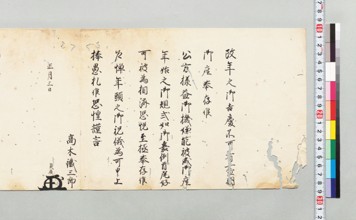 改年之御吉慶不可有際限
御座奉存候
公方様益御機嫌能被成御座
年始之御規式如御嘉例首尾好
可被為相済恐悦至極奉存候
右年頭之御祝儀為可申上
捧愚札候恐惶謹言
正月三日
高木